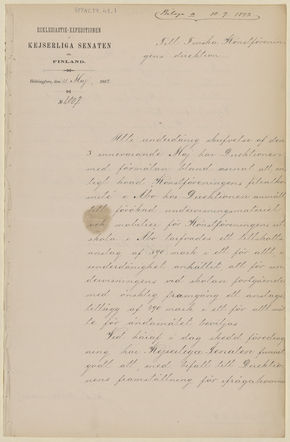 Bilaga B 10.9.1893.
ECKLESIASTIK-EXPEDITIONEN
KEJSERLIGA SENATEN
FINLAND.
Helsingfors, den Maj, 188
No
Till Finska Konstförenin-
gens direktion.
Uti underdånig skrifvelse af den
3 innevarande Maj har Direktionen
med förmälan bland annat att en-
ligt hvad Konstföreningens filialko-
mité i Åbo hos Direktionen anmält
till förökad undervisningsmateriel
och mobilier för Konstföreningens rit-
skola i Åbo erfordrades ett tillskotts-
anslag af 390 mark i ett för allt, i
underdånighet anhållit att för un-
dervisningens vid skolan fortgående
med önsklig framgång ett anslags-
tillägg af 390 mark i ett för allt må-
tte för ändamålet beviljas
Vid häraf i dag skedd föredrag-
ning har Kejserliga Senaten funnit
godt att, med bifall till Direktio-
nens framställning för ifrågavarande